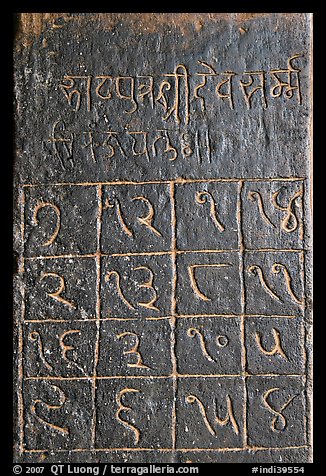 श्रीदेवसर्म्म
७ १२ १ १४
२ १३ ८ ११
१६ ३ १० ५
९ ६ १५ ४
© 2007 QT Luong / terragalleria.com #indi39554